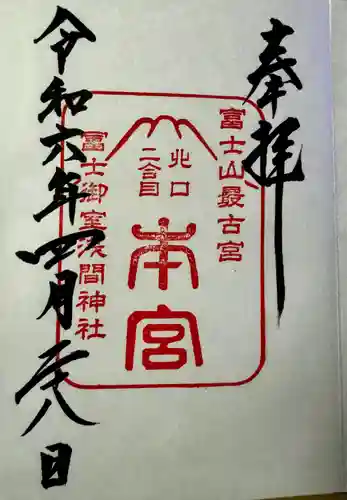 奉拝
富士山最古宮
北口
二合目
本宮
冨士御室浅間神社
令和六年四月二十八日